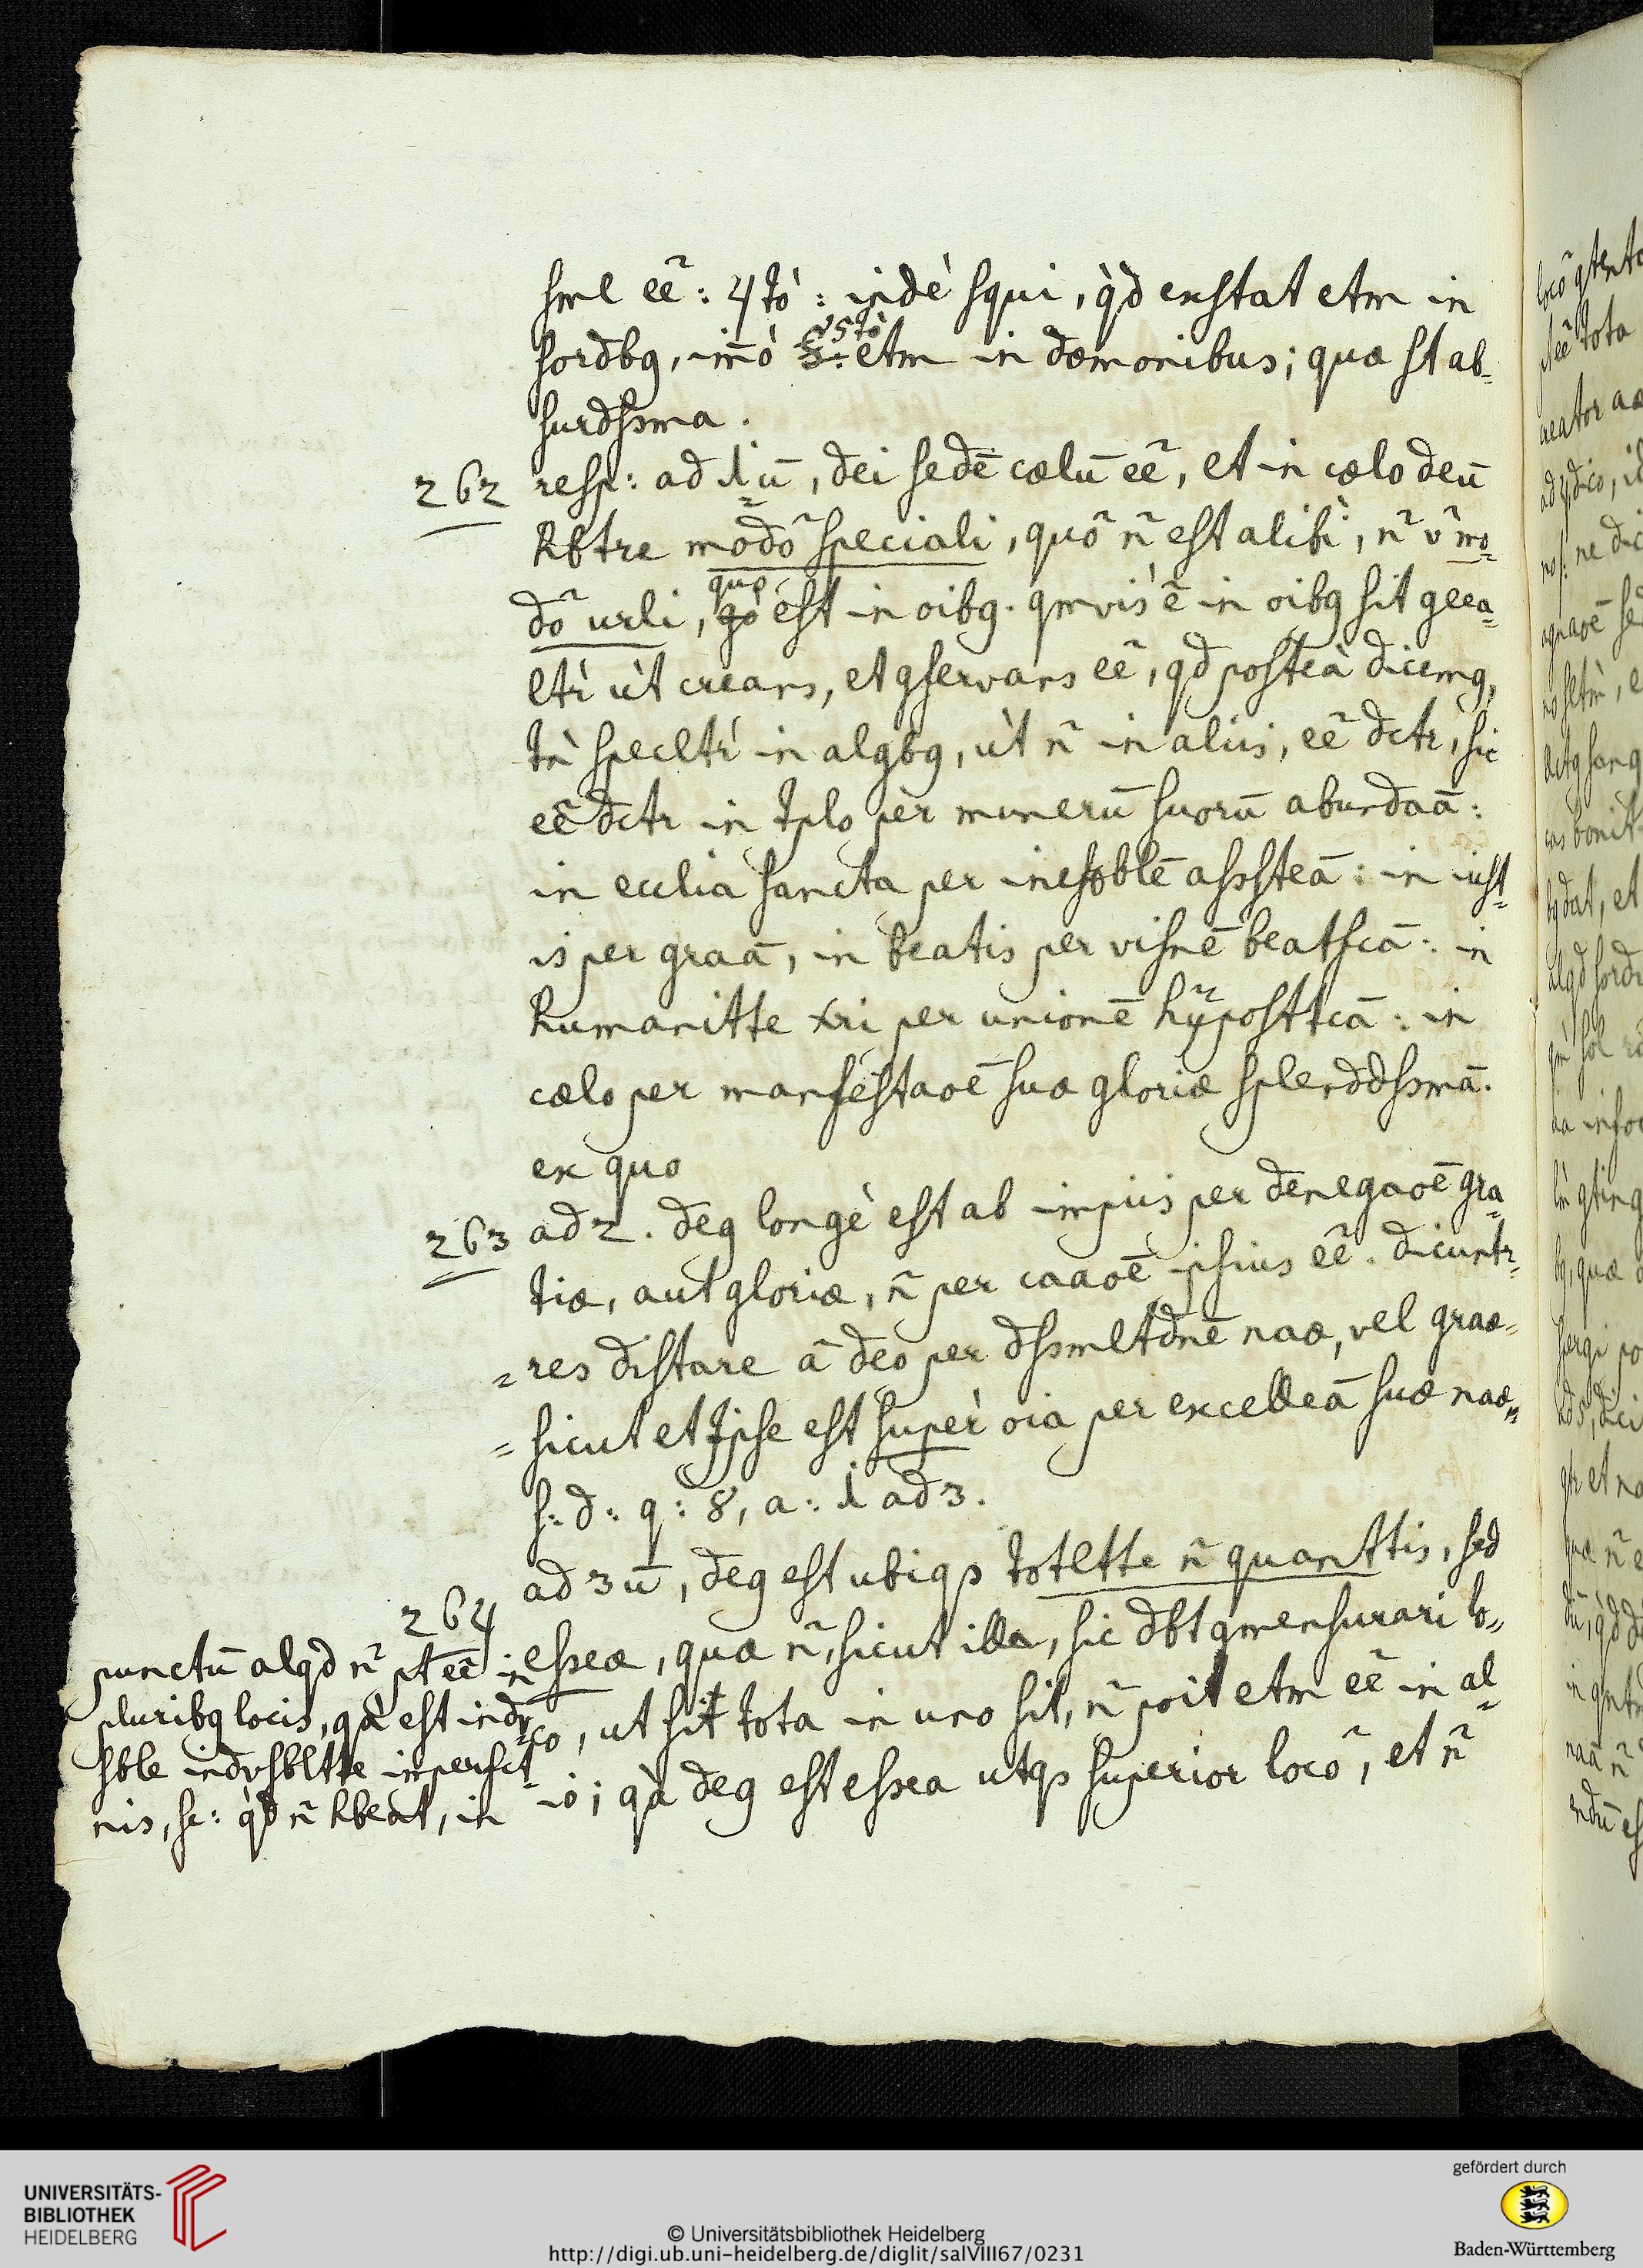 sml eẽ: 4tò: indè squi, q̀d exstat etm in
sordbq, im̄ò 5tò etm in dæmonibus; quæ st ab-
surdssma.
262 resp: ad 1ū, dei sedē cælū eẽ, et in cælo deū
hbtre modõ speciali, quõ ñ est alibi, ñ ṽ mo-
dõ urli, quo est in oibq. qmvis ẽ in oibq sit geea-
ltr̀ ùt creans, et qservans eẽ, qd posteà dicemq,
tǹ specltr̀ in alqbq, ùt ñ in aliis, eẽ dctr, sic
eẽ dctr in tplo per munerū suorū abundaā:
in ecclia sancta per inesblē assstēā: in iust-
is per graā, in beatis per visnē beatfcā: in
humanitte xri per unionē hÿposttcā: in
cælo per manfestaoē suæ gloriæ splenddssmā.
ex quo
263 ad 2. deq longè est ab impiis per denegaoē gra-
tiæ, aut gloriæ, ñ per caaoē ipsius eẽ. dicuntr-
= res distare ā deo per dssmltdnē naæ, vel graæ-
= sicut et ipse est supèr oia per excelleā suæ naæ
s: d: q: 8, a: 1 ad 3.
264 ad 3ū, deq est ubiqs totltte ñ quanttis, sed
esseæ, quæ ñ, sicut illa, sic dbt qmensurari lo-
co, ut sit tota in uno sit, ñ poit etm eẽ in al-
io; qà deq est essea utqs superior locõ, et ñ
punctū alqd ñ pt eẽ in
pluribq locis, qà est indv-
sble indvsbltte imperfct-
nis, sc: qd ñ hbeat, in
UNIVERSITÄTS-
BIBLIOTHEK
HEIDELBERG
© Universitätsbibliothek Heidelberg
http://digi.ub.uni-heidelberg.de/diglit/salVIII67/0231
gefördert durch
Baden-Württemberg